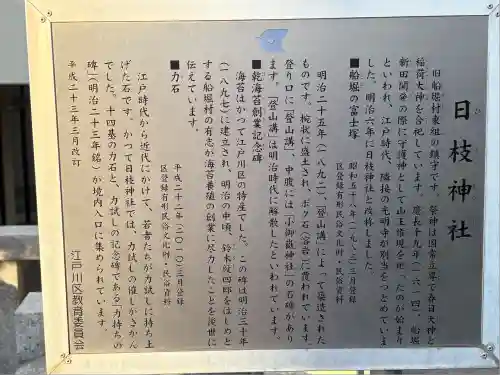 日枝神社
旧船堀村東組の鎮守です。祭神は国常立尊で春日大神と
稲荷大神を合祀しています。慶長十九年（一六一四）、船堀
新田開発の際に守護神として山王権現を祀ったのが始まり
といわれ、江戸時代、隣接の光明寺が別当をつとめていま
した。明治六年に日枝神社と改称しました。
■船堀の富士塚
昭和五十八年（一九八三）三月登録
区登録有形民俗文化財・民俗資料
明治二十五年（一八九二）、「登山講」によって築造された
ものです。椀状に盛土され、ボク石（溶岩）に覆われています。
登り口に「登山講」、中腹には「小御嶽神社」の石碑があり
ます。「登山講」は明治時代に解散したといわれています。
■乾海苔創業記念碑
海苔はかつて江戸川区の特産でした。この碑は明治三十年
（一八九七）に建立され、明治の中頃、鈴木紋四郎をはじめと
する船堀村の有志が海苔養殖の創業に尽力したことを後世に
伝えています。
■力石
平成二十二年（二〇一〇）三月登録
区登録有形民俗文化財・民俗資料
江戸時代から近代にかけて、若者たちが力試しに持ち上
げた石です。かつて日枝神社では、力試しの催しがさかん
でした。十四基の力石と、力試しの記念碑である「力持ちの
碑」（明治二十三年銘）が境内入口に集められています。
平成二十三年三月改訂
江戸川区教育委員会